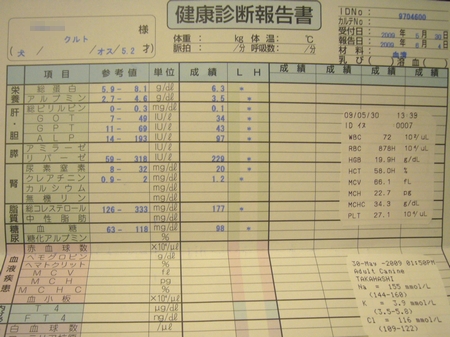 健康診断報告書
様
クルト
(犬 / オス/5.2 才)
体重: kg 体温: ℃
脈拍: 分/ 呼吸数: 分/
IDNo 9704600
カルテNo
受付日 2009年 5月30日
報告日 2009年 6月 4日
材料 血清
乳び( ) 溶血( )
項目 参考値 単位 成績 L H 成績 成績 成績
栄養
総蛋白 5.9 - 8.1 g/dl 6.3 *
アルブミン 2.7 - 4.6 g/dl 3.5 *
肝・胆
総ビリルビン 0 - 0.3 mg/dl 0.1 *
GOT 7 - 49 IU/l 34 *
GPT 11 - 69 IU/l 43 *
ALP 14 - 193 IU/l 97 *
膵
アミラーゼ IU/l
リパーゼ 59 - 318 IU/l 229 *
腎
尿素窒素 8 - 32 mg/dl 20 *
クレアチニン 0.9 - 2 mg/dl 1.2 *
カルシウム mg/dl
無機リン mg/dl
脂質
総コレステロール 126 - 333 mg/dl 177 *
中性脂肪 mg/dl
糖尿
血糖 63 - 118 mg/dl 98 *
糖化アルブミン %
血液疾患
赤血球数 ×10⁴/μl
ヘモグロビン g/dl
ヘマトクリット %
MCV fl
MCH pg
MCHC %
血小板 ×10⁴/μl
T4 μg/dl
FT4 ng/dl
白血球数 /μl
09/05/30 13:39
IDイヌ 0007
WBC 72 10²/uL
RBC 878H 10⁴/uL
HGB 19.9H g/dL
HCT 58.0H %
MCV 66.1 fL
MCH 22.7 pg
MCHC 34.3 g/dL
PLT 27.1 10⁴/uL
30-May -2009 01:50PM
Adult Canine
TAKAHASHI
Na = 155 mmol/L
(144-160)
K = 3.9 mmol/L
(3.5-5.8)
Cl = 116 mmol/L
(109-122)